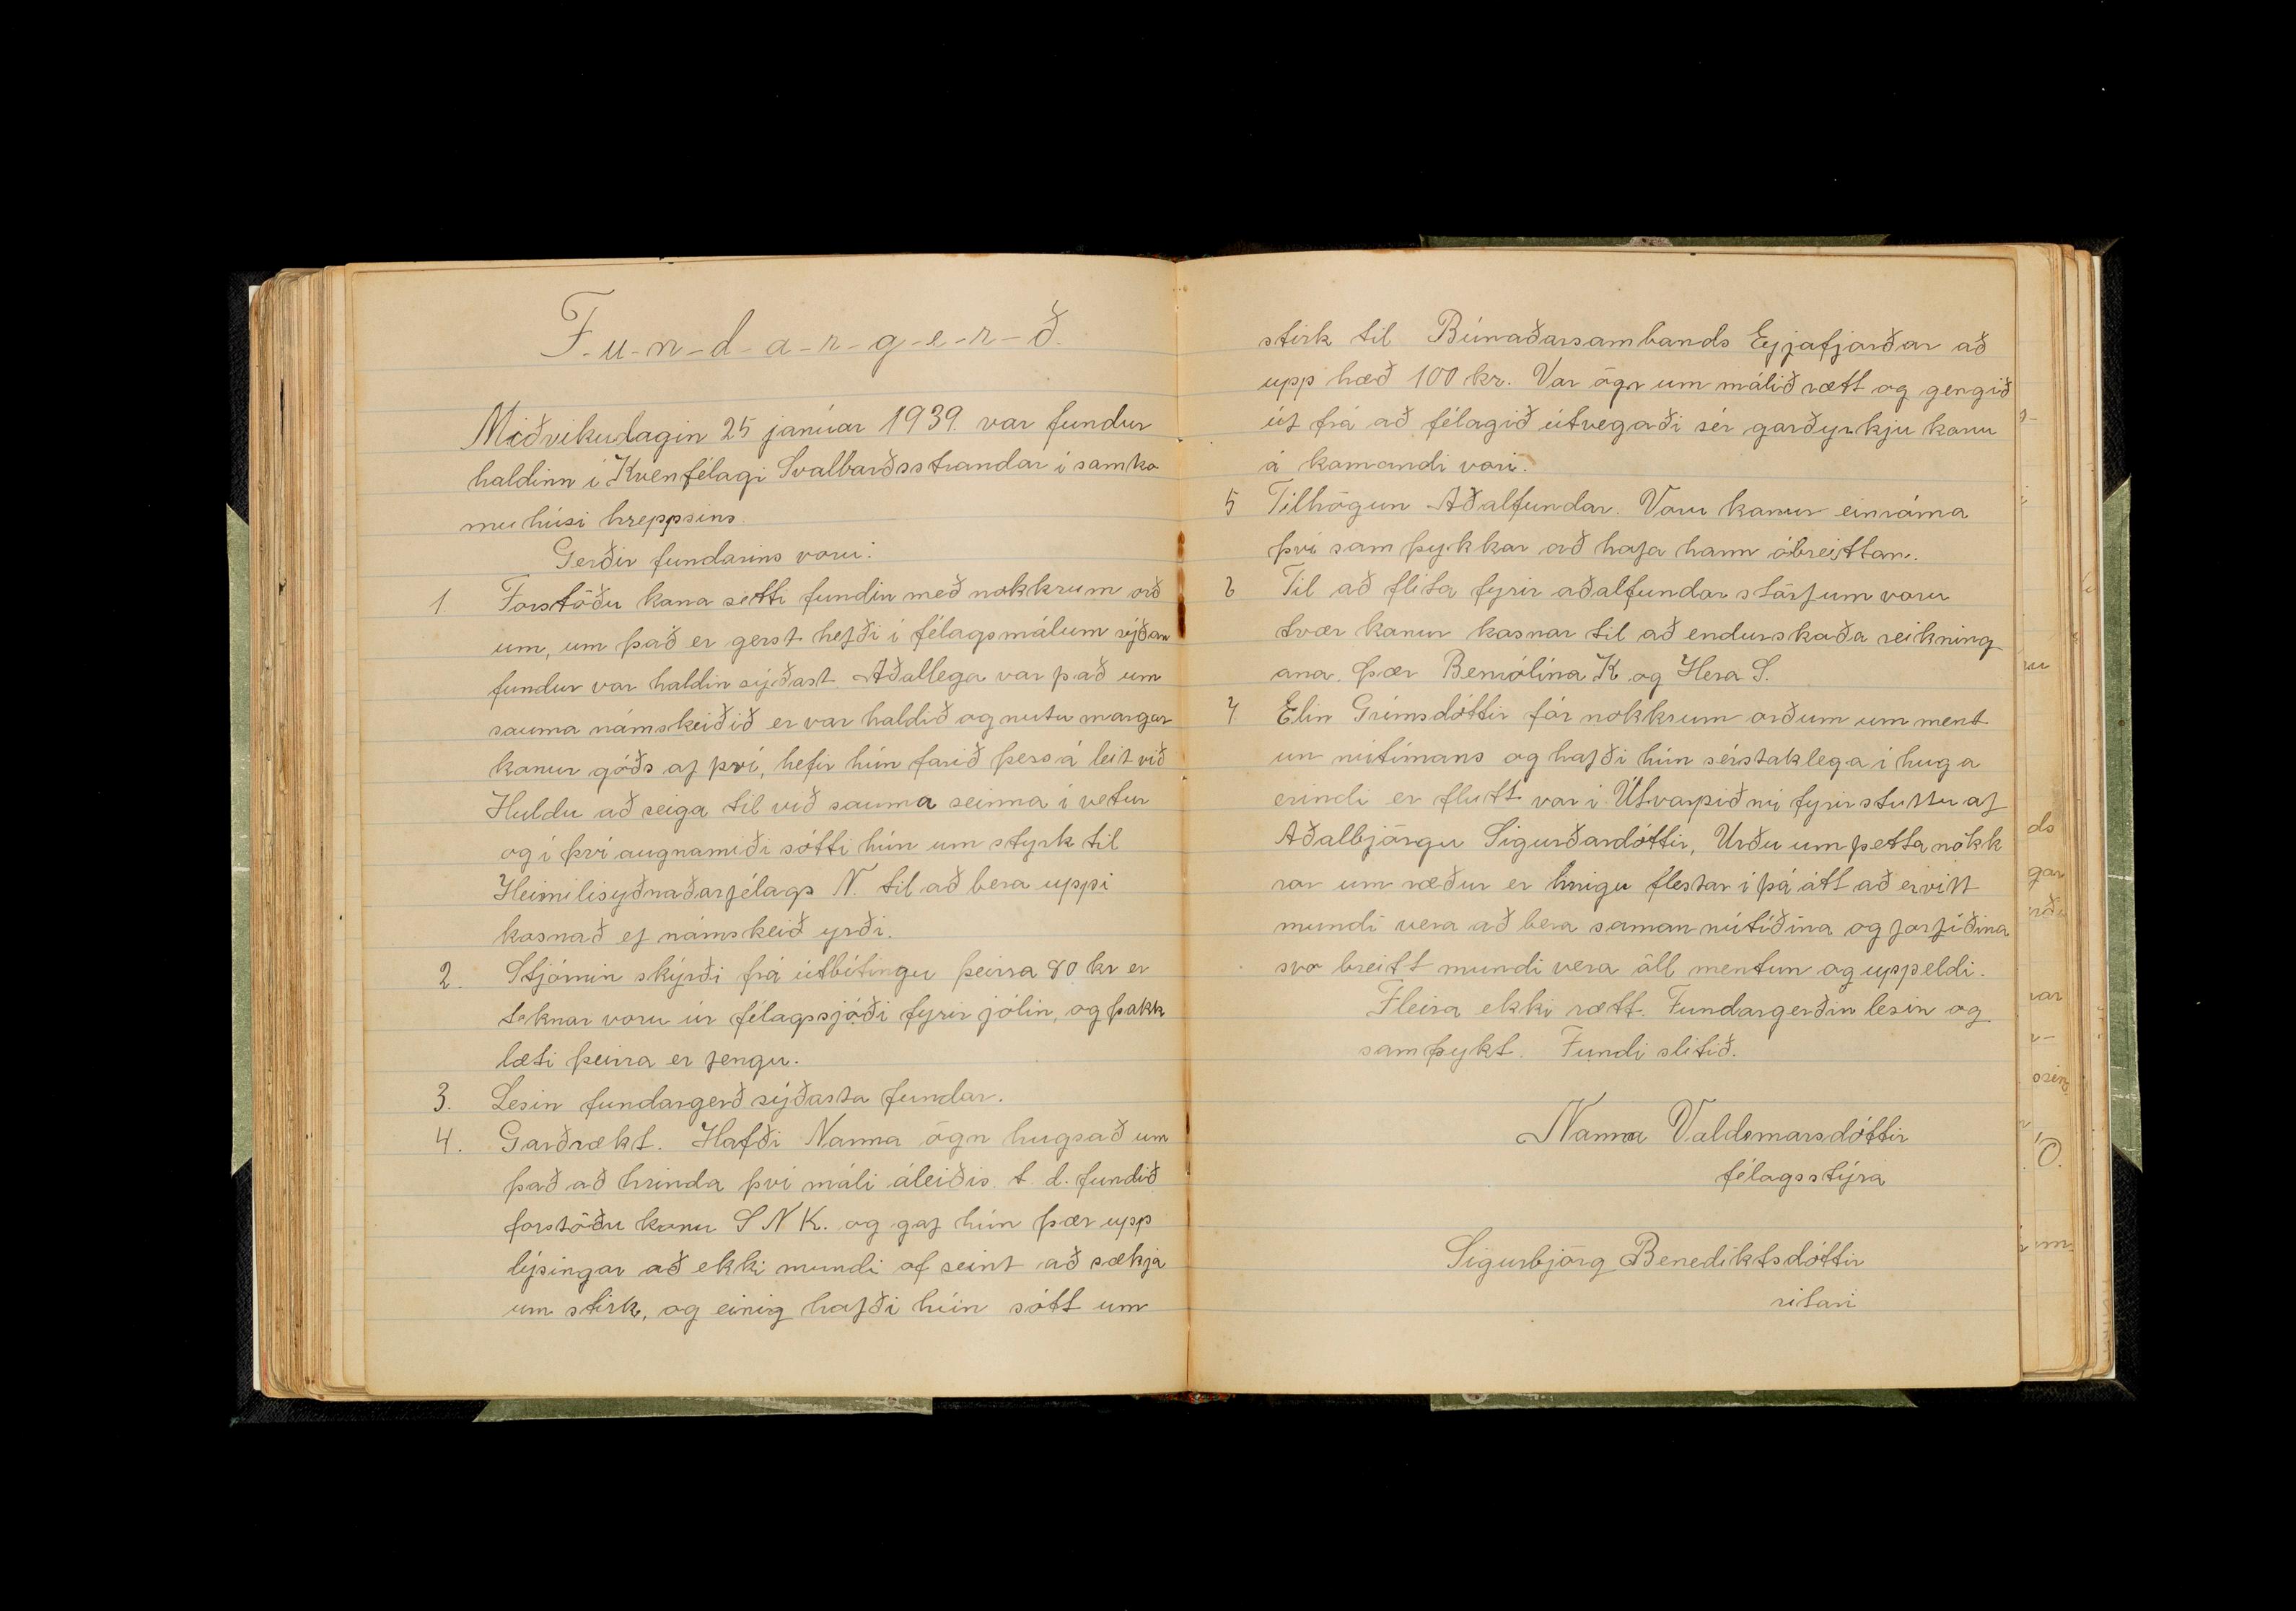 F-u-n-d-a-r-g-e-r-ð.
Miðvikudagin 25 janúar 1939. var fundur
haldinn í Kvenfélagi Svalbarðsstrandar í samko
muhúsi hreppsins.
Gerðir fundarins voru:
1 Forstöðu kona setti fundin með nokkrum orð
um, um það er gerst hefði í félagsmálum sýðan
fundur var haldin sýðast Aðallega var það um
sauma námskeiðið er var haldið og nutu margar
konur góðs af því, hefir hún farið þess á leit við
Huldu að seiga til við sauma seinna í vetur
og í því augnamiði sótti hún um styrk til
Heimilisyðnaðarfélags N. til að bera uppi
kosnað ef námskeið yrði.
2. Stjórnin skýrði frá útbítingu þeirra 80 kr er
teknar voru úr félagssjóði fyrir jólin, og þakk
læti þeirra er fengu.
3. Lesin fundargerð sýðasta fundar.
4. Garðrækt. Hafði Nanna ögn hugsað um
það að hrinda því máli áleiðis. t. d. fundið
forstöðu konu S N K. og gaf hún þær upp
lýsingar að ekki mundi of seint að sækja
um stirk, og einig hafði hún sótt um
stirk til Búnaðarsambands Eyjafjarðar að
upp hæð 100 kr. Var ögn um málið rætt og gengið
út frá að félagið útvegaði sér garðyrkju konu
á komandi vori.
5 Tilhögun Aðalfundar. Voru konur einróma
því samþykkar að hafa hann óbreittan.
6 Til að flíta fyrir aðalfundar störfum voru
tvær konur kosnar til að endurskoða reikning
ana. þær Bernólína K. og Hera S.
7 Elin Grímsdóttir fór nokkrum orðum um ment
un nútímans og hafði hún sérstaklega í huga
erindi er flutt var í Útvarpið nú fyrir stuttu af
Aðalbjörgu Sigurðardóttir, Urðu um þetta nokk
rar um ræður er hnigu flestar í þá átt að ervitt
mundi vera að bera saman nútíðina og fortíðina
svo breitt mundi vera öll mentun og uppeldi.
Fleira ekki rætt. Fundargerðin lesin og
samþykt. Fundi slitið.
Nanna Valdemarsdóttir
félagsstýra
Sigurbjörg Benediktsdóttir
ritari